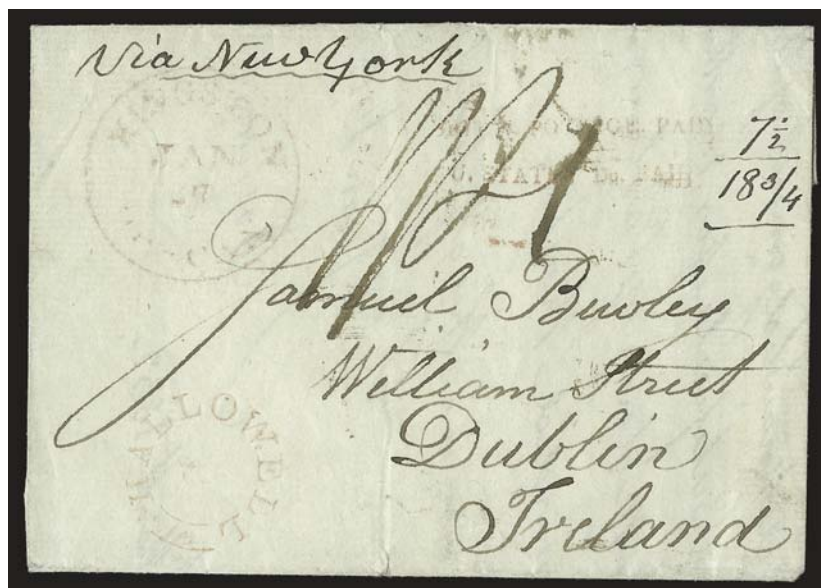 via New York
KINGSTON
JAN
PAID
U. STATES Do. PAID.
7 1/2
18 3/4
Samuel Bewley
William Street
Dublin
Ireland
HALLOWELL